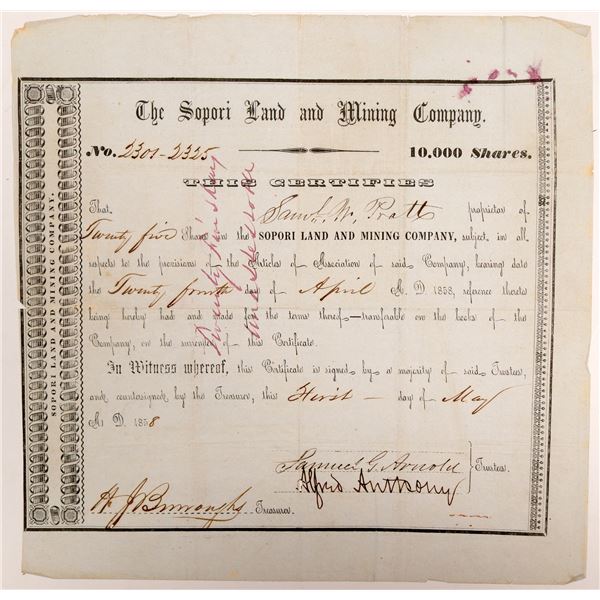 The Sopori Land and Mining Company.
No. 2301-2325 10.000 Shares.
THIS CERTIFIES
That Saml. W. Pratt proprietor of
Twenty five Shares in the SOPORI LAND AND MINING COMPANY, subject, in all
respects to the provisions of the Articles of Association of said Company, bearing date
the Twenty fourth day of April A. D. 1858, reference thereto
being hereby had and made for the terms thereof—transferable on the books of the
Company, on the surrender of this Certificate.
In Witness whereof, this Certificate is signed by a majority of said Trustees,
and countersigned by the Treasurer, this First — day of May
A. D. 1858
Samuel G. Arnold
Alfred Anthony
Trustees.
A J Burroughs Treasurer.
SOPORI LAND AND MINING COMPANY.